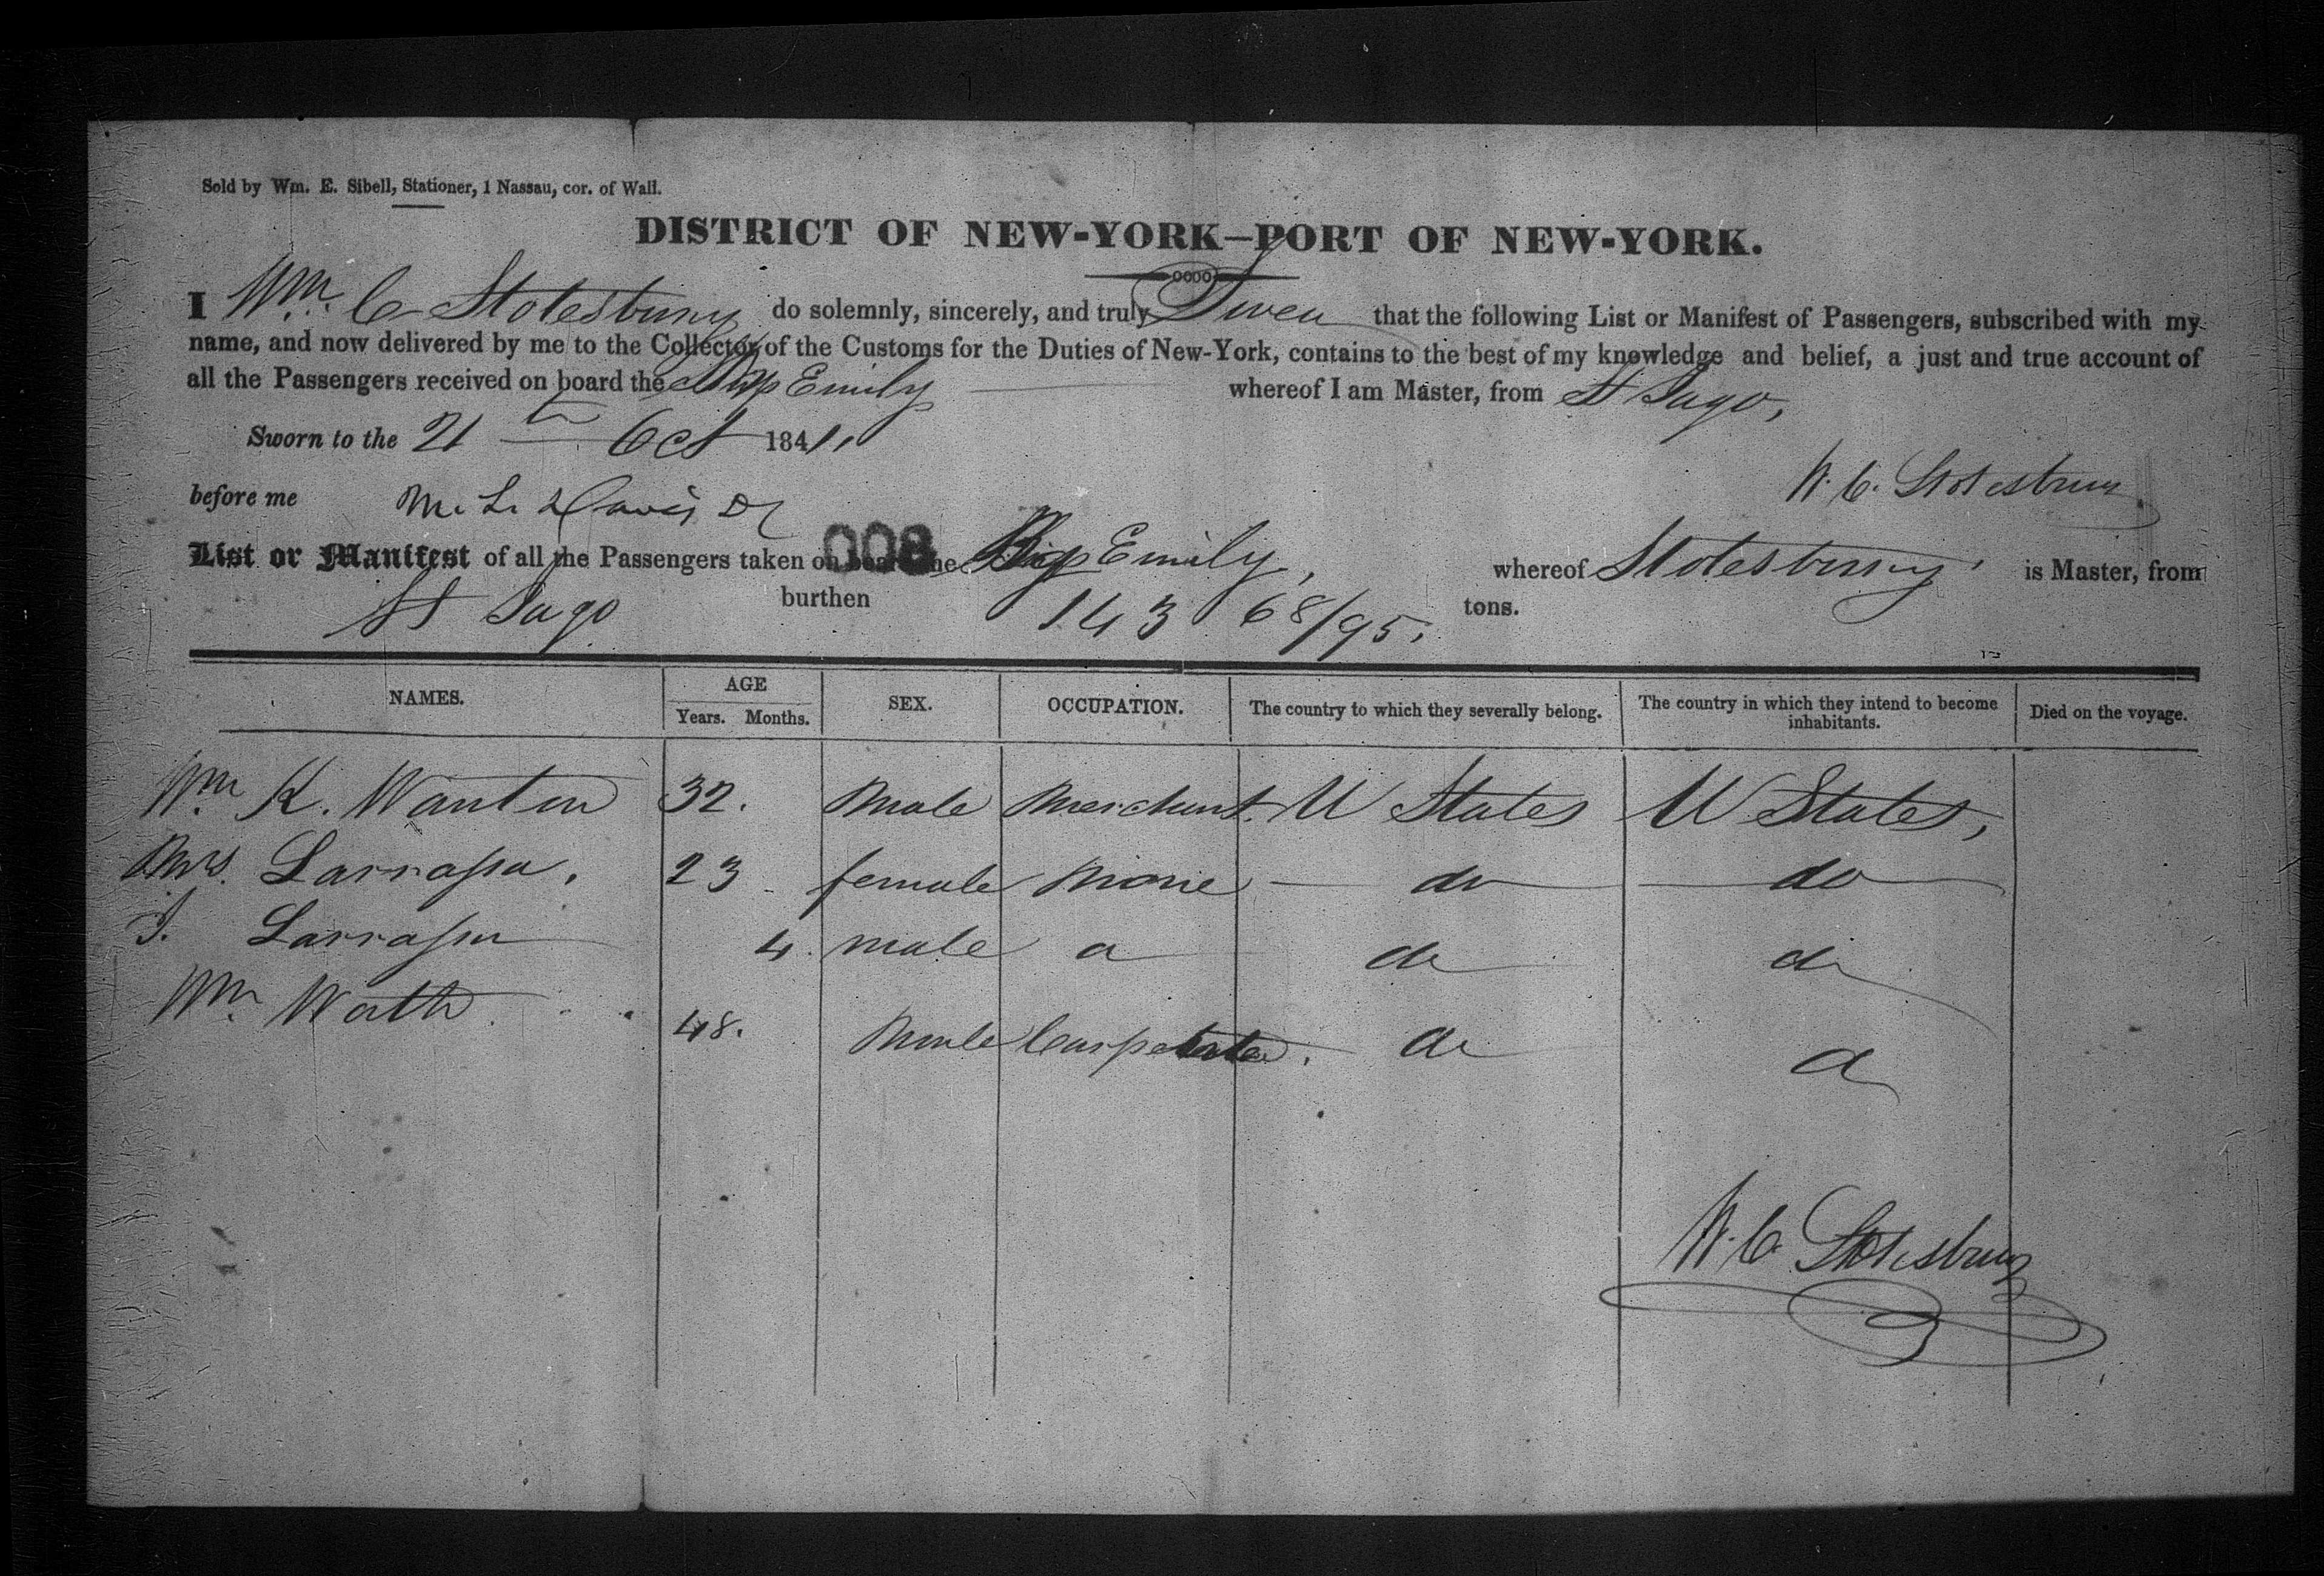 Sold by Wm. E. Sibell, Stationer, 1 Nassau, cor. of Wall.
DISTRICT OF NEW-YORK—PORT OF NEW-YORK.
I Wm. C Stotesbury do solemnly, sincerely, and truly Swear that the following List or Manifest of Passengers, subscribed with my
name, and now delivered by me to the Collector of the Customs for the Duties of New-York, contains to the best of my knowledge and belief, a just and true account of
all the Passengers received on board the Emily whereof I am Master, from St Jago,
Sworn to the 21 Oct 1841.
W. C. Stotesbury
before me M. L. Davis
008
List or Manifest of all the Passengers taken on board the Brig Emily, whereof Stotesbury, is Master, from
St Jago burthen 143 68/95. tons.
NAMES. AGE Years. Months. SEX. OCCUPATION. The country to which they severally belong. The country in which they intend to become inhabitants. Died on the voyage.
Wm K. Wanton 32. Male Merchant. U States U States,
Mrs. Larrassa. 23 female None do do
J. Larrassa 4. male do do
Wm. Wath 48. Male Carpenter. do do
W. C. Stotesbury